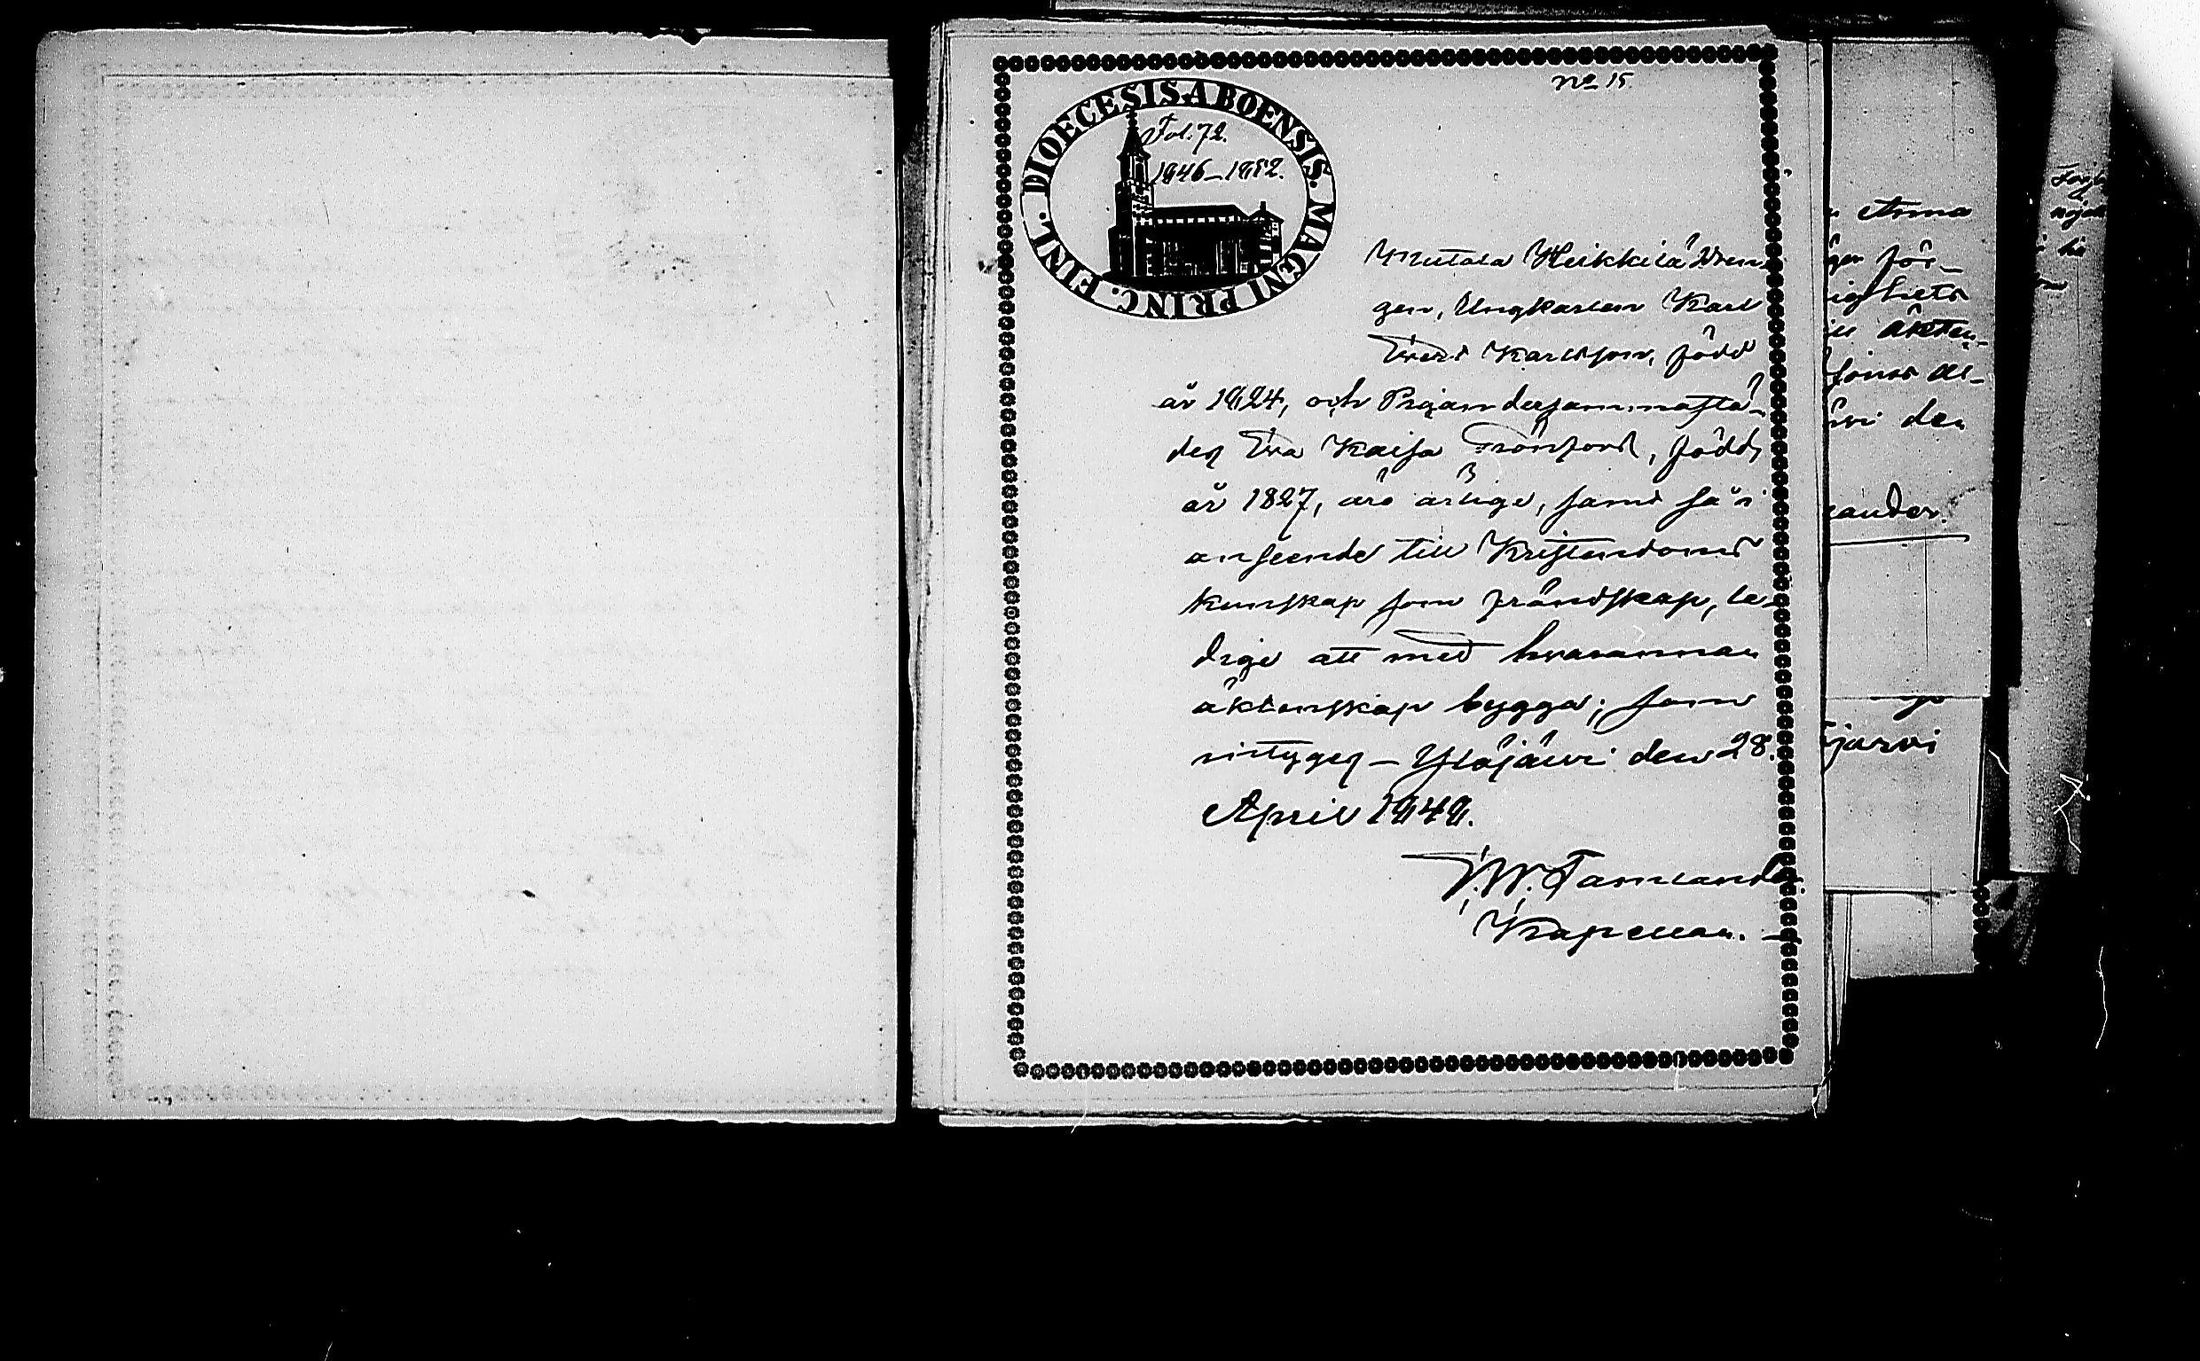 No 15.
DIOECESIS ABOENSIS. MAGNI PRINC. FINL.
Fol. 72.
1846–1852.
Mutala Heikkilä Dren-
gen, Ungkarlen Karl
Karlsson, född
år 1824, och Pigan dersammastä-
des Eva Kaisa Grönfors, född
år 1827, äro ärlige, samt så i
anseende till Kristendoms
kunskap som frändskap, le-
dige att med hvarannan
äktenskap bygga; som
intygas – Ylöjärvi den 28.
April 1848.
Kapellan.
Anna
för-
ighets
ill äkten-
den
ander.
järvi